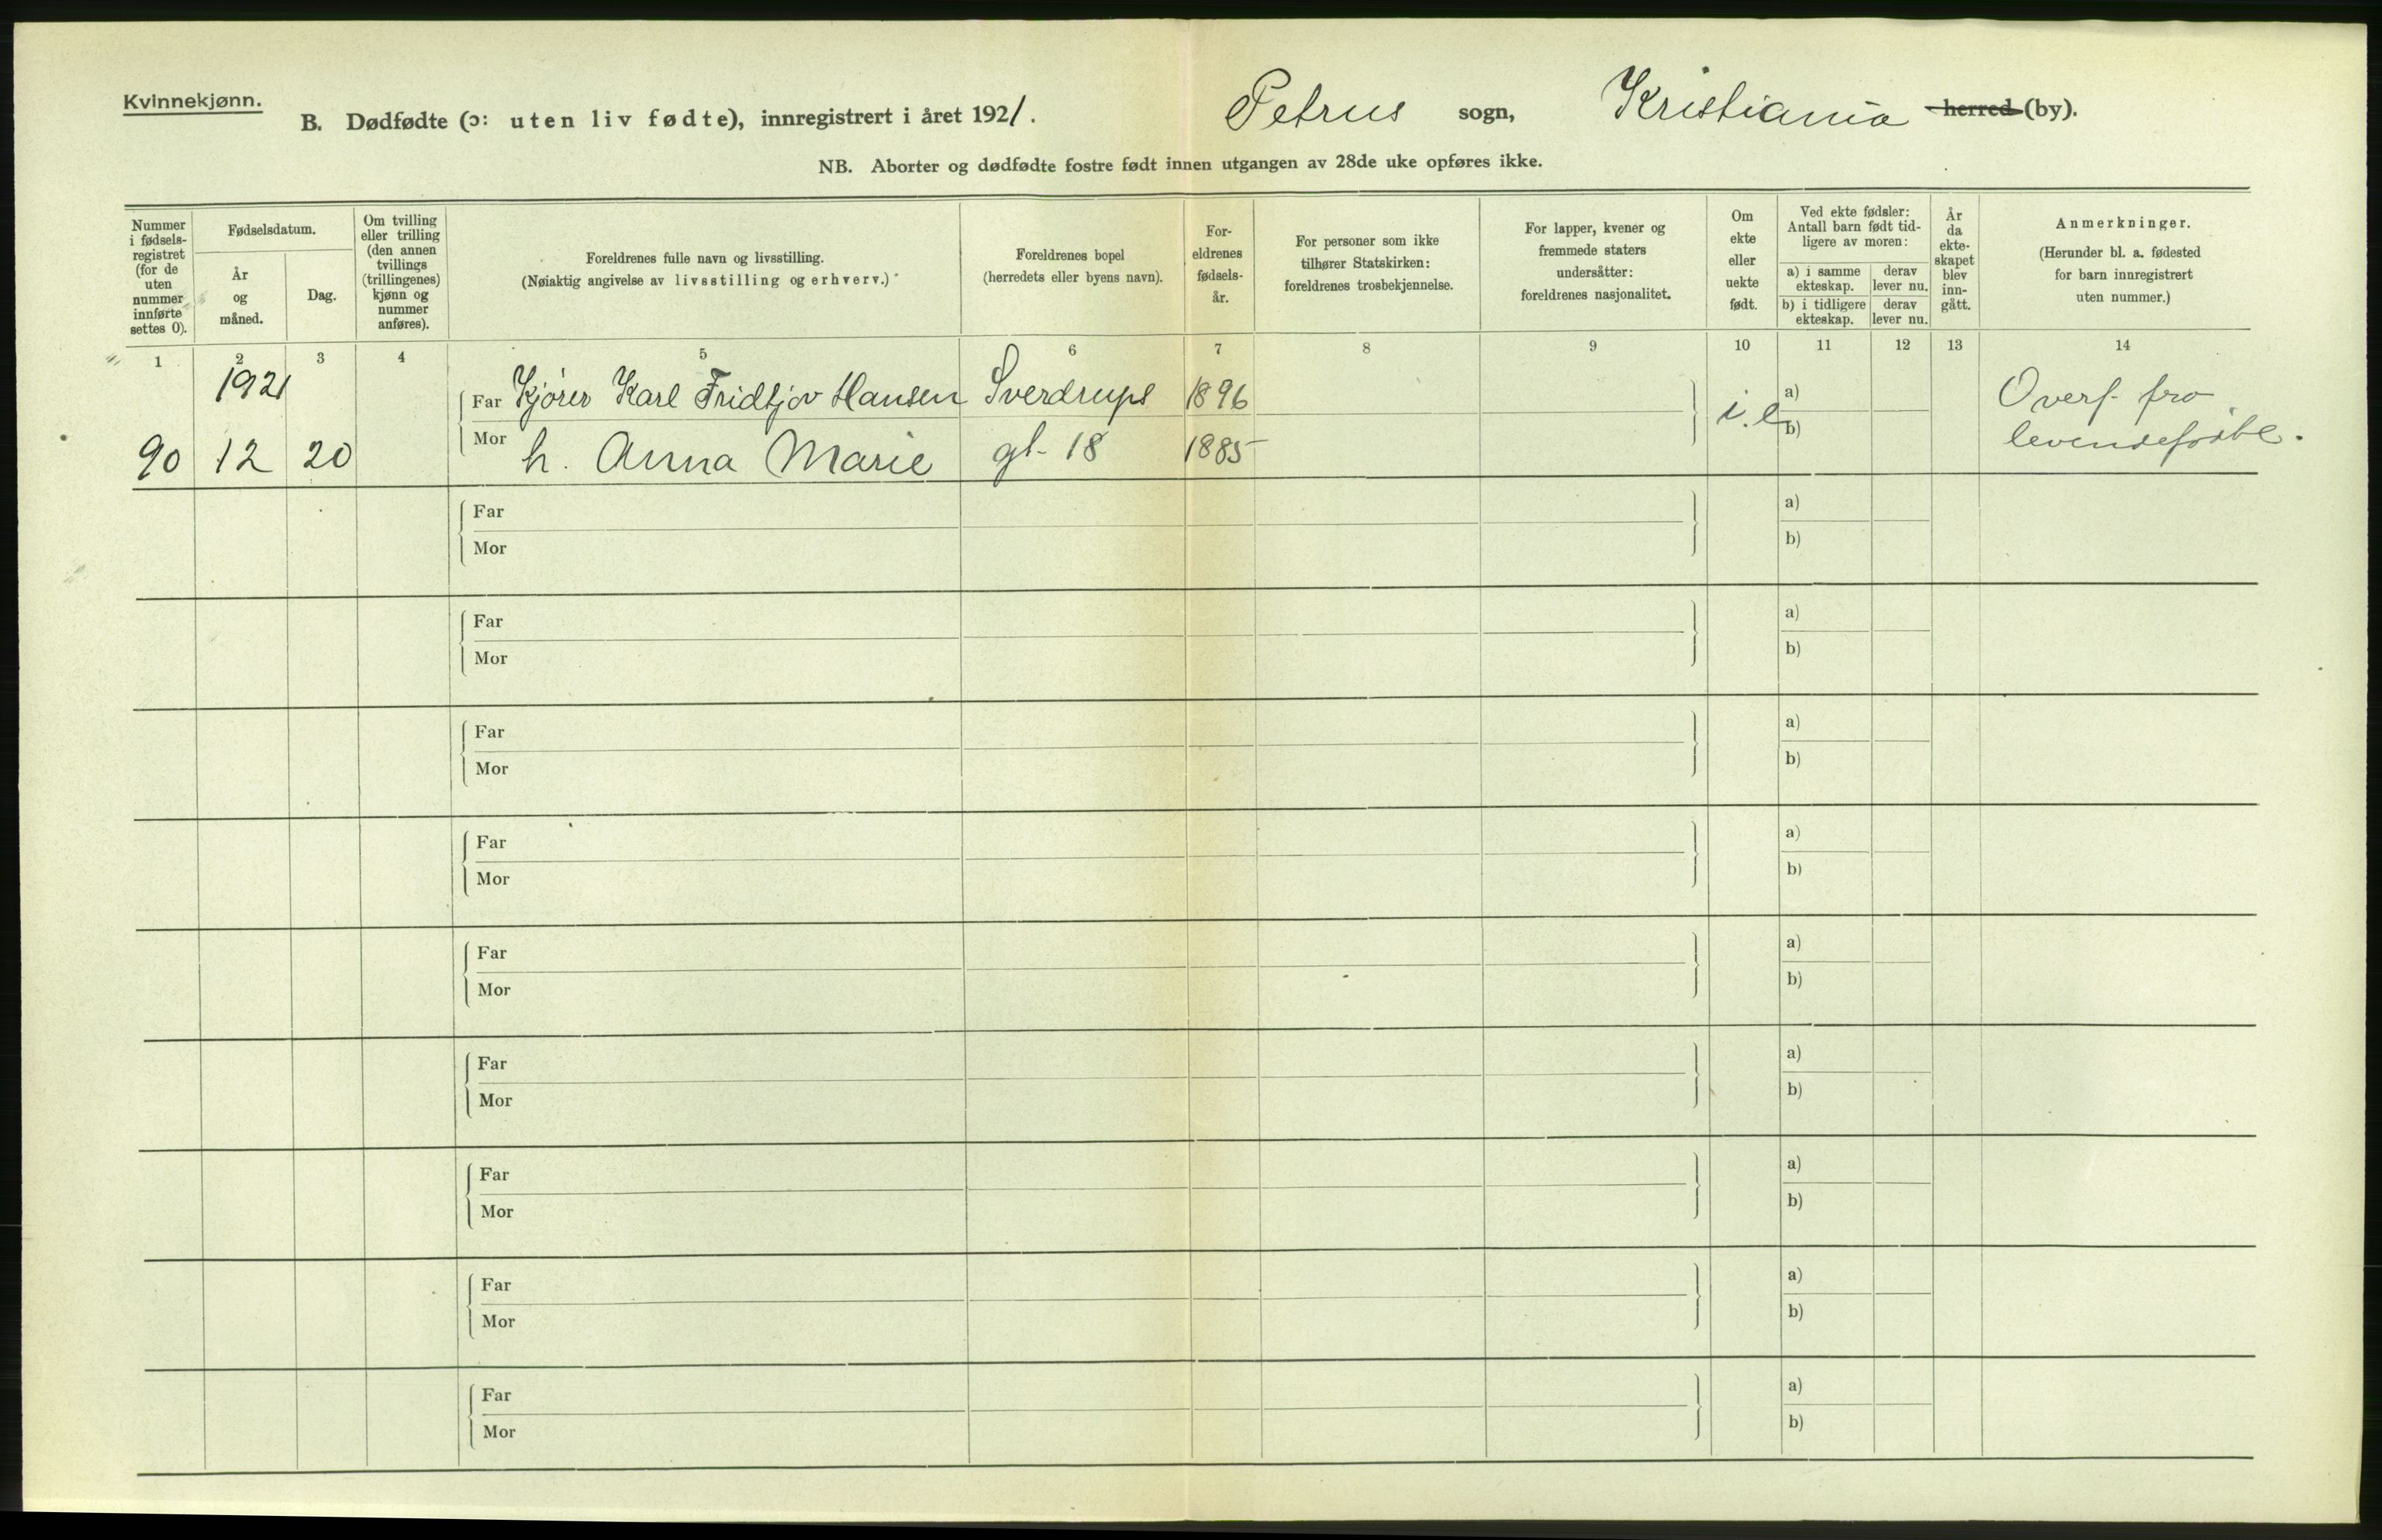 Kvinnekjønn.
B. Dødfødte (ɔ: uten liv fødte), innregistrert i året 1921.
Petrus sogn, Kristiania herred (by).
NB. Aborter og dødfødte fostre født innen utgangen av 28de uke opføres ikke.
Nummer i fødsels-registret (for de uten nummer innførte settes 0).
Fødselsdatum.
År og måned.
Dag.
Om tvilling eller trilling (den annen tvillings (trillingenes) kjønn og nummer anføres).
Foreldrenes fulle navn og livsstilling.
(Nøiaktig angivelse av livsstilling og erhverv.)
Foreldrenes bopel
(herredets eller byens navn).
For-eldrenes fødsels-år.
For personer som ikke tilhører Statskirken: foreldrenes trosbekjennelse.
For lapper, kvener og fremmede staters undersåtter: foreldrenes nasjonalitet.
Om ekte eller uekte født.
Ved ekte fødsler: Antall barn født tid-ligere av moren:
a) i samme ekteskap.
derav lever nu.
b) i tidligere ekteskap.
derav lever nu.
År da ekte-skapet blev inn-gått.
Anmerkninger.
(Herunder bl. a. fødested for barn innregistrert uten nummer.)
1 2 3 4 5 6 7 8 9 10 11 12 13 14
1921 Far Kjører Karl Fridtjov Hansen Sverdrups 1896 i. e a) Overf. fra
90 12 20 Mor h. Anna Marie gt. 18 1885 b) levendefødte.
Far a)
Mor b)
Far a)
Mor b)
Far a)
Mor b)
Far a)
Mor b)
Far a)
Mor b)
Far a)
Mor b)
Far a)
Mor b)
Far a)
Mor b)
Far a)
Mor b)